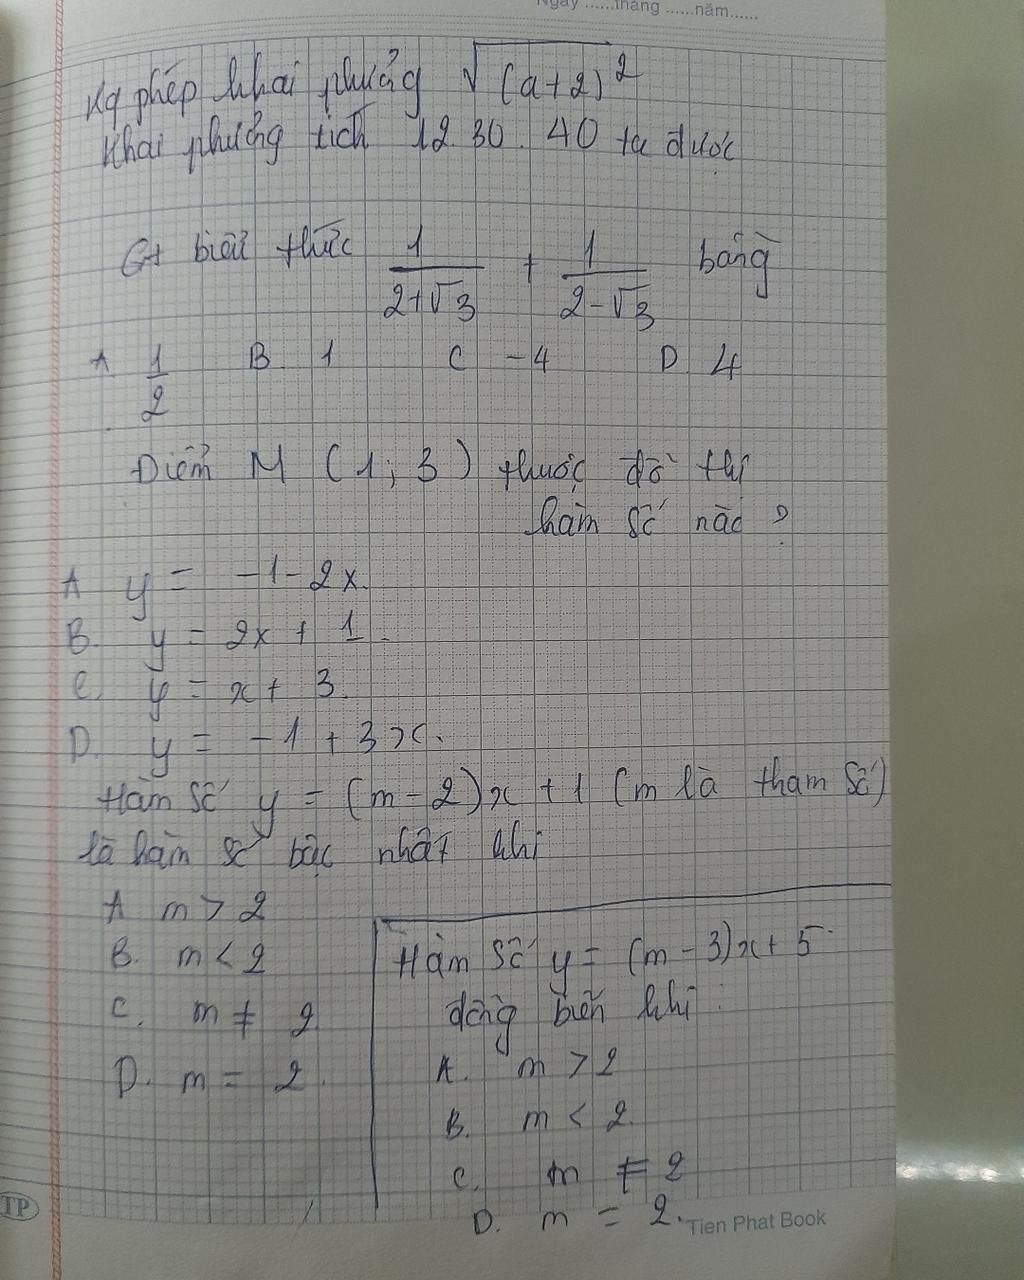 Ngày ......tháng ......năm......
Kq phép khai phương √(a+2)²
Khai phương tích 12.30.40 ta được
Gt biểu thức 1/(2+√3) + 1/(2-√3) bằng
A 1/2 B. 1 C -4 D. 4
Điểm M (1; 3) thuộc đồ thị
hàm số nào ?
A y = -1-2x.
B. y = 2x + 1.
C. y = x + 3.
D. y = -1 + 3x.
Hàm số y = (m-2)x + 1 (m là tham số)
là hàm số bậc nhất khi
A m > 2
B. m < 2
C. m ≠ 2
D. m = 2.
Hàm số y = (m-3)x + 5
đồng biến khi :
A. m > 2
B. m < 2.
C. m ≠ 2
D. m = 2.
TP
Tien Phat Book